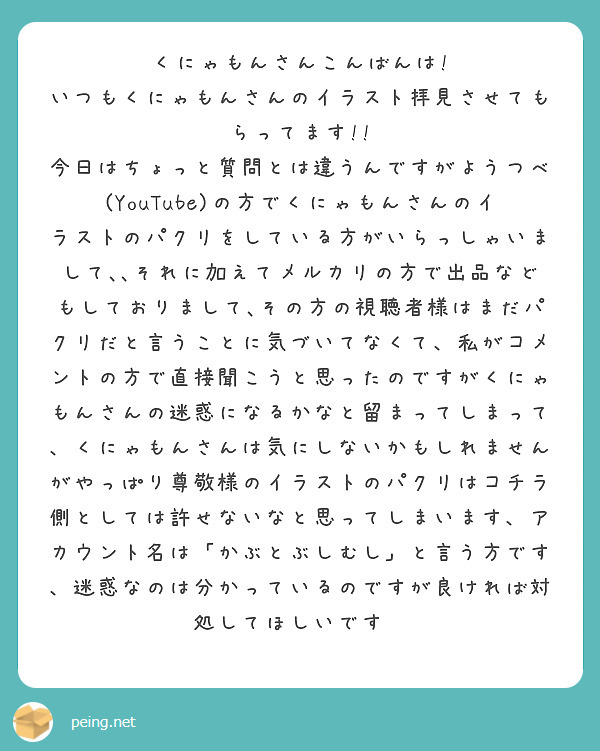 くにゃもんさんこんばんは!
いつもくにゃもんさんのイラスト拝見させても
らってます!!
今日はちょっと質問とは違うんですがようつべ
(YouTube)の方でくにゃもんさんのイ
ラストのパクリをしている方がいらっしゃいま
して、、それに加えてメルカリの方で出品など
もしておりまして、その方の視聴者様はまだパ
クリだと言うことに気づいてなくて、私がコメ
ントの方で直接聞こうと思ったのですがくにゃ
もんさんの迷惑になるかなと留まってしまって
、くにゃもんさんは気にしないかもしれません
がやっぱり尊敬様のイラストのパクリはコチラ
側としては許せないなと思ってしまいます、ア
カウント名は「かぶとぶしむし」と言う方です
、迷惑なのは分かっているのですが良ければ対
処してほしいです
peing.net